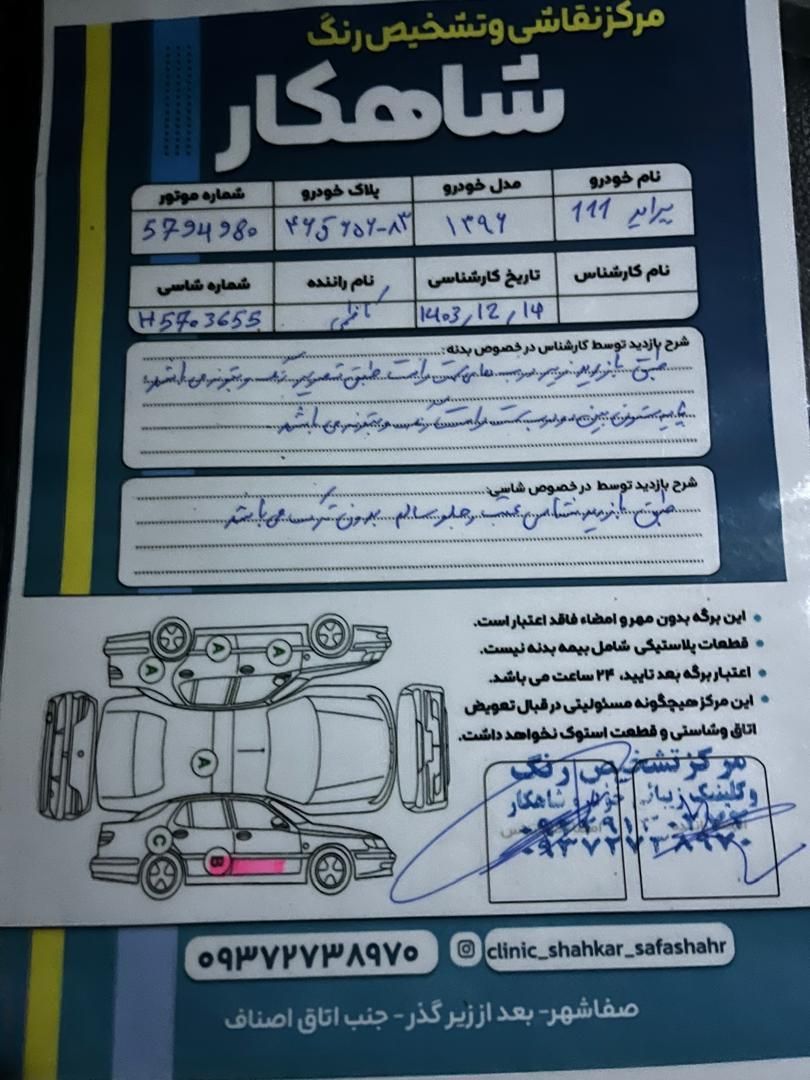 مرکز نقاشی و تشخیص رنگ
شاهکار
نام خودرو مدل خودرو پلاک خودرو شماره موتور
پراید 111 ۱۳۹۶ 5794980
نام کارشناس تاریخ کارشناسی نام راننده شماره شاسی
1403/12/14 کاظمی H5703655
شرح بازدید توسط کارشناس در خصوص بدنه:
طبق بازدید زیر درب های سمت راست طبق تصویر رنگ و بتونه می باشد
پایین ستون بین دو درب سمت راست رنگ و بتونه می باشد
شرح بازدید توسط در خصوص شاسی:
طبق بازدید شاسی عقب جلو سالم بدون ترکیدگی می باشد
این برگه بدون مهر و امضاء فاقد اعتبار است.
قطعات پلاستیکی شامل بیمه بدنه نیست.
اعتبار برگه بعد تایید، ۲۴ ساعت می باشد.
این مرکز هیچگونه مسئولیتی در قبال تعویض
اتاق وشاسی و قطعت استوک نخواهد داشت.
A A A
A
C B
مرکز تشخیص رنگ
و کلینیک زیبائی خودرو شاهکار
۰۹۳۷۲۷۳۸۹۷۰
۰۹۳۷۲۷۳۸۹۷۰
clinic_shahkar_safashahr
صفاشهر- بعد از زیر گذر - جنب اتاق اصناف